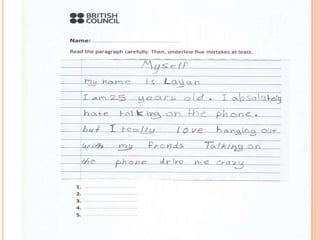 BRITISH
COUNCIL
Name:
Read the paragraph carefully. Then, underline five mistakes at least.
Myself
my name is Layan
I am 25 years old. I absolutely
hate talking on the phone.
but I really love hanging out
with my frends Talking on
the phone drive me crazy
1.
2.
3.
4.
5.